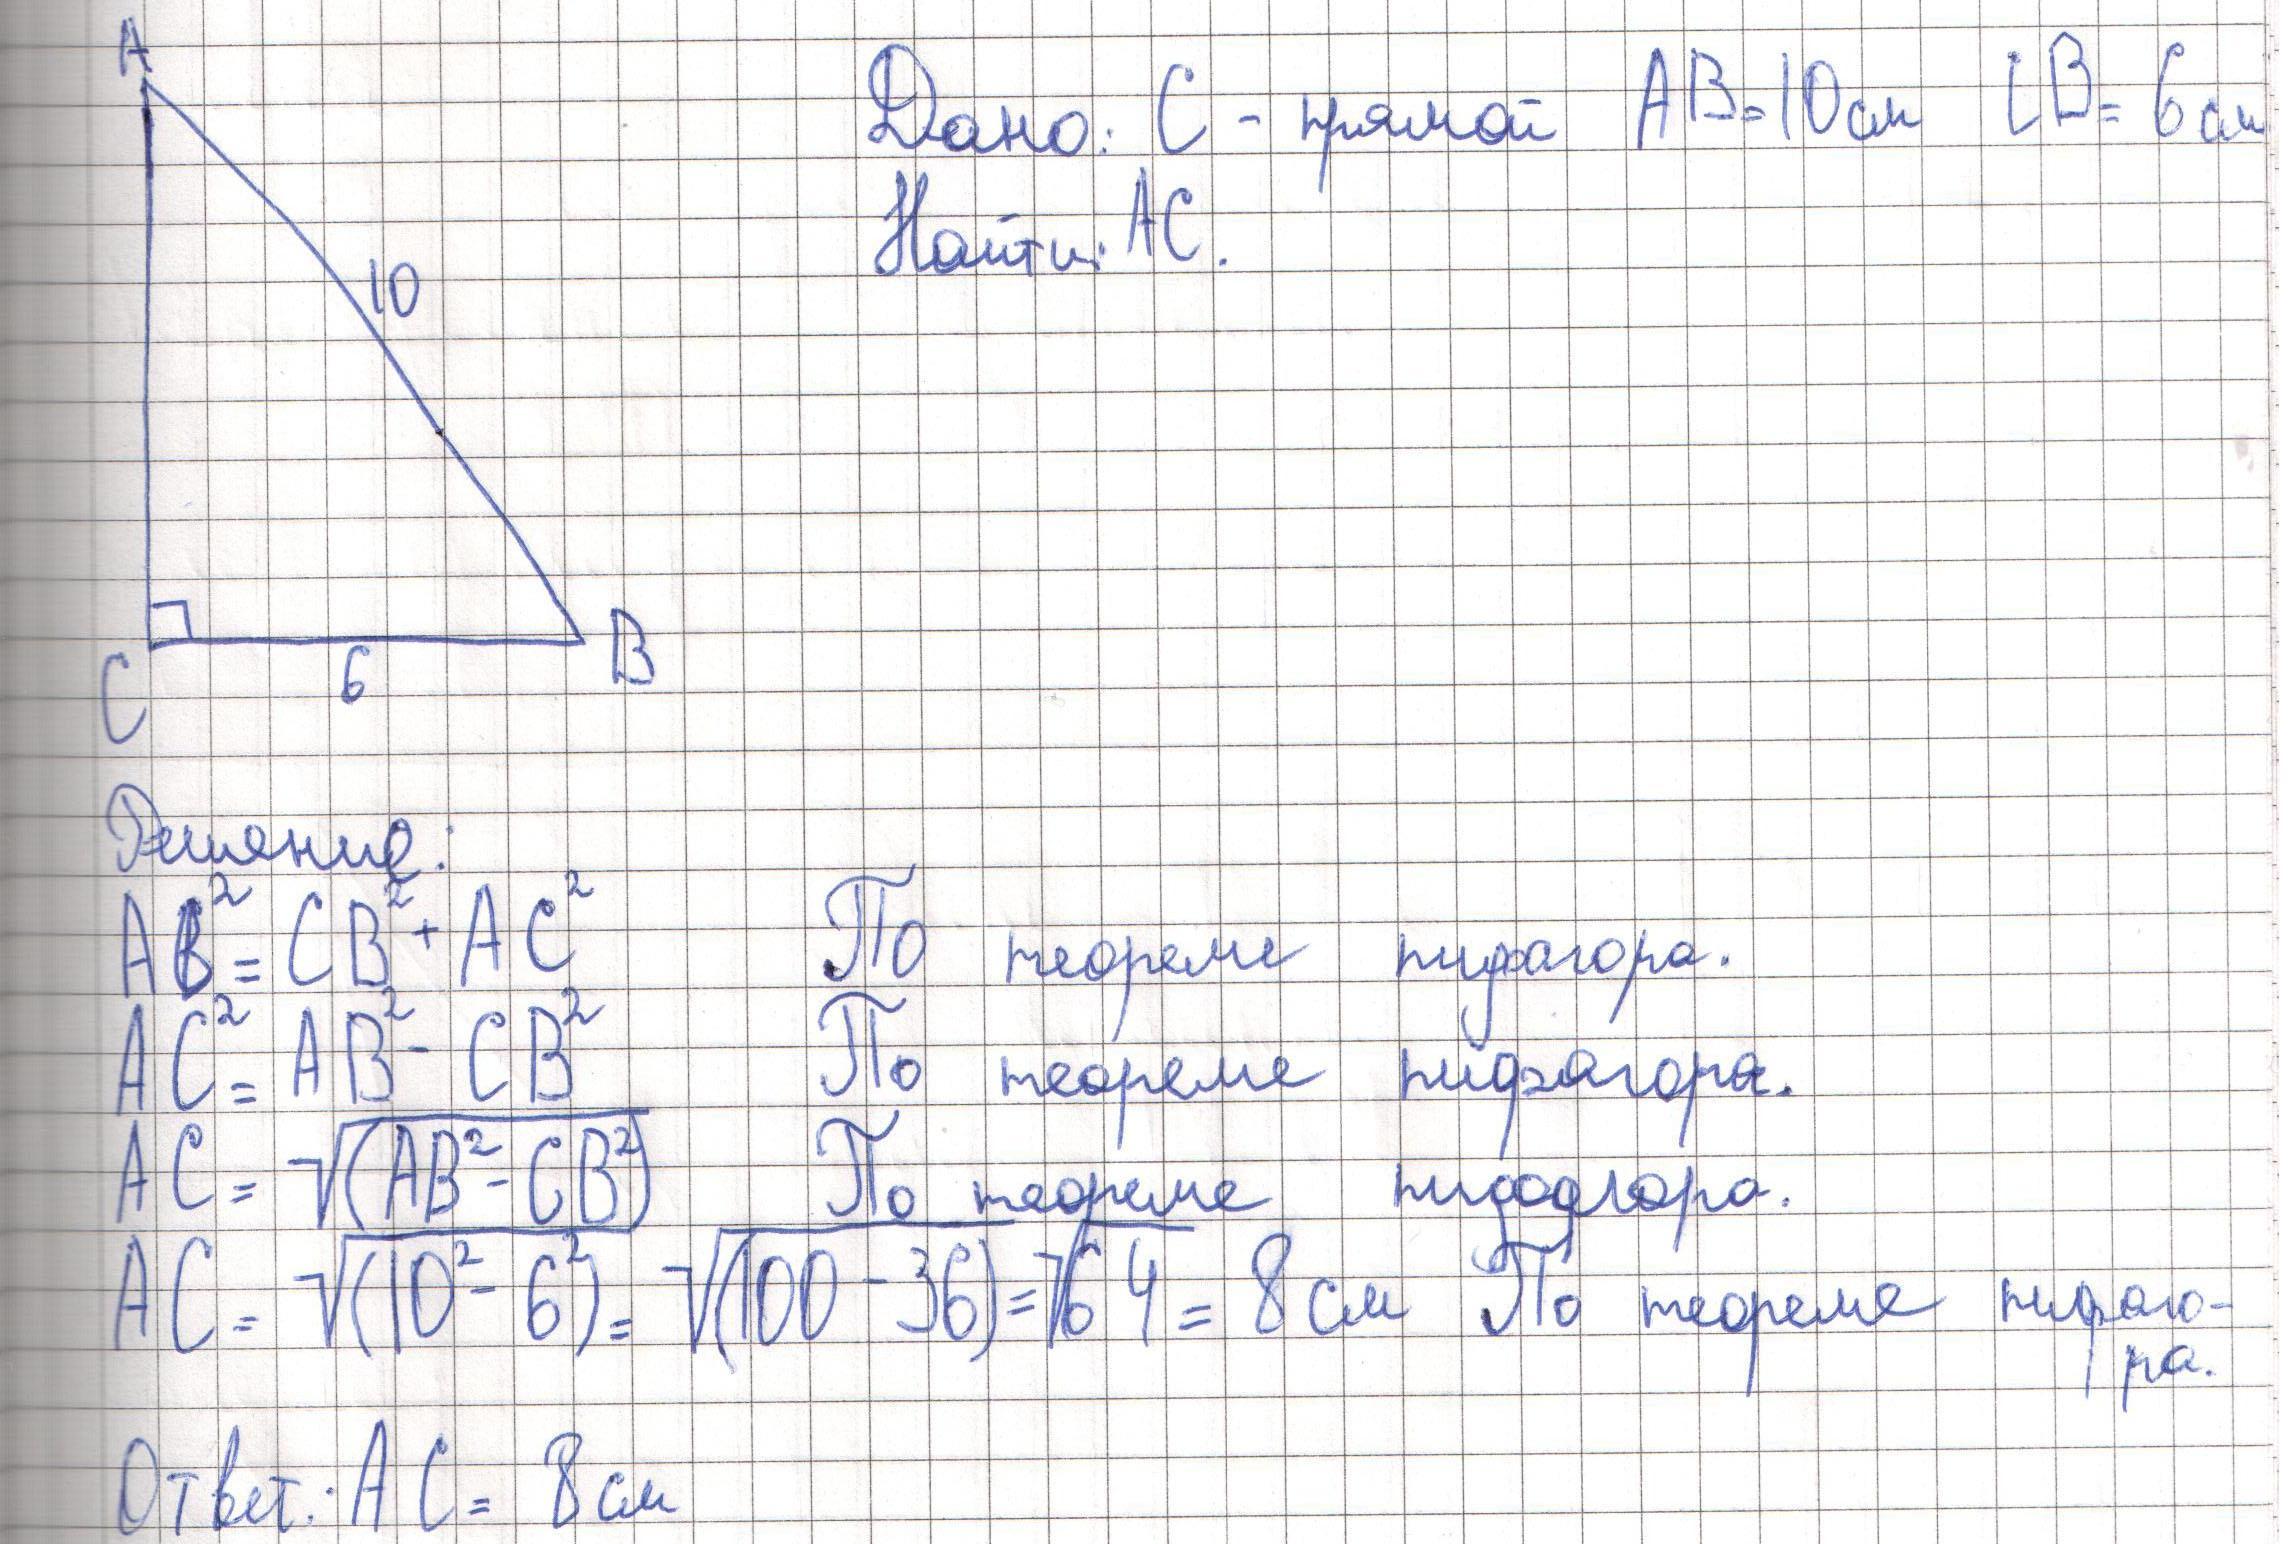 A
Дано: C - прямой AB=10см CB=6см
Найти: AC.
10
C
6
B
Решение:
AB²=CB²+AC² По теореме пифагора.
AC²=AB²-CB² По теореме пифагора.
AC=√(AB²-CB²) По теореме пифагора.
AC=√(10²-6²)=√(100-36)=√64=8см По теореме пифаго-
ра.
Ответ: AC=8см